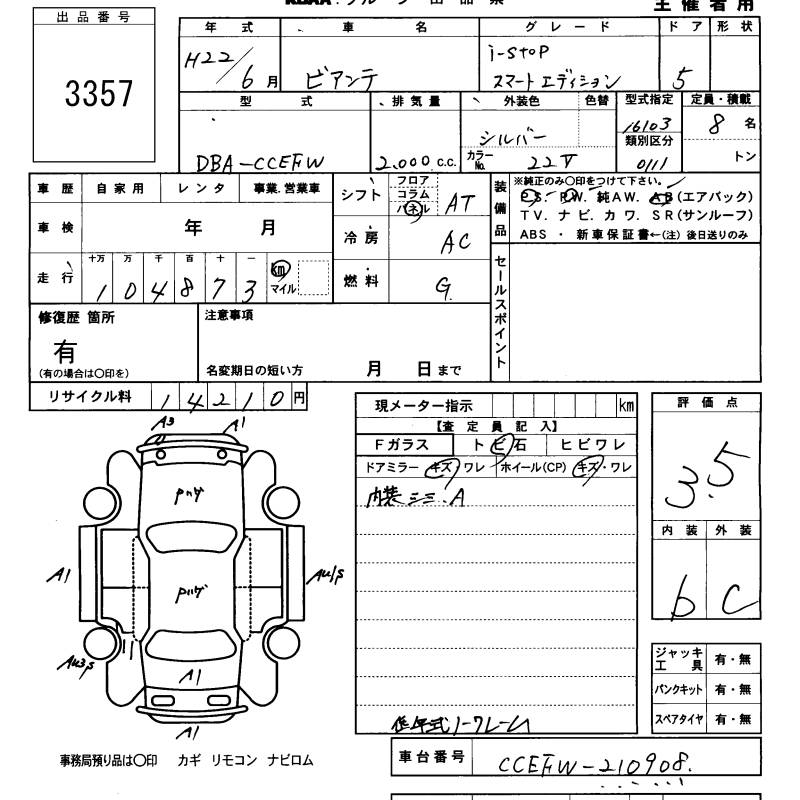 主催者用
出品番号
3357
年式 車名 グレード ドア 形状
H22/6月 ビアンテ i-stop スマートエディション 5
型式 排気量 外装色 色替 型式指定 定員・積載
DBA-CCEFW 2.000c.c. シルバー 16103 8名
カラーNo. 22V 類別区分 0111 トン
車歴 自家用 レンタ 事業.営業車
車検 年 月
走行 十万 万 千 百 十 一 km
104873 マイル
シフト フロア コラム パネル AT
冷房 AC
燃料 G
装備品 ※純正のみ○印をつけて下さい。
P.S. P.W. 純AW. AB(エアバック)
TV. ナビ. カワ. SR(サンルーフ)
ABS ・ 新車保証書←(注) 後日送りのみ
セールスポイント
修復歴 箇所
有
(有の場合は○印を)
注意事項
名変期日の短い方 月 日まで
リサイクル料 14210円
現メーター指示 km
【査定員記入】
Fガラス トビ石 ヒビワレ
ドアミラー キズ・ワレ ホイール(CP) キズ・ワレ
内装シミ.A
低年式ノークレーム
評価点
3.5
内装 外装
b C
ジャッキ工具 有・無
パンクキット 有・無
スペアタイヤ 有・無
A3 A1
Pハゲ
A1 Pハゲ
A1
A1
事務局預り品は○印 カギ リモコン ナビロム
車台番号 CCEFW-210908.